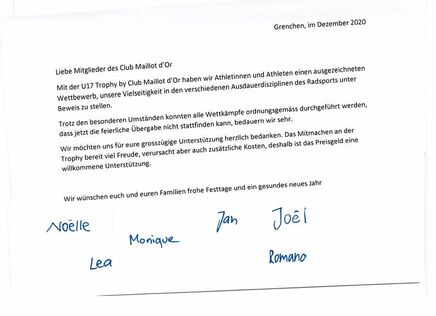 Grenchen, im Dezember 2020
Liebe Mitglieder des Club Maillot d'Or
Mit der U17 Trophy by Club Maillot d'Or haben wir Athletinnen und Athleten einen ausgezeichneten
Wettbewerb, unsere Vielseitigkeit in den verschiedenen Ausdauerdisziplinen des Radsports unter
Beweis zu stellen.
Trotz den besonderen Umständen konnten alle Wettkämpfe ordnungsgemäss durchgeführt werden,
dass jetzt die feierliche Übergabe nicht stattfinden kann, bedauern wir sehr.
Wir möchten uns für eure grosszügige Unterstützung herzlich bedanken. Das Mitmachen an der
Trophy bereit viel Freude, verursacht aber auch zusätzliche Kosten, deshalb ist das Preisgeld eine
willkommene Unterstützung.
Wir wünschen euch und euren Familien frohe Festtage und ein gesundes neues Jahr
Noëlle
Monique
Jan
Joël
Lea
Romano